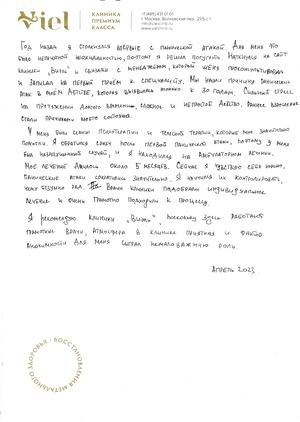 Viel
КЛИНИКА
ПРЕМИУМ
КЛАССА
Год назад я столкнулся впервые с панической атакой. Для меня это
было неприятной неожиданностью, поэтому я решил попасть
клиники „Виэль" и связался с менеджером, который меня проконсультировал
и записал на первый приём к специалисту. Мы нашли причину панических
атак в моём детстве, которая вызывала только к 30 годам. Сильный стресс
на протяжении долгого времени, сложное и непростое детство, раннее взросление
стали причинами моего состояния.
У меня были сеансы психотерапии и телесной терапии, которые мне значительно
помогли. Я обратился сразу после первой панической атаки, поэтому у меня
был незапущенный случай, и я находился на амбулаторном лечении.
Моё лечение длилось около 5 месяцев. Сейчас я чувствую себя хорошо,
панические атаки сократились значительно. Я научился их контролировать,
чему безумно рад. Врачи клиники подобрали индивидуальное
лечение и очень грамотно подходили к процессу.
Я рекомендую клинику „Виэль", поскольку здесь работают
грамотные врачи, атмосфера в клинике приятная и фактор
анонимности для меня сыграл немаловажную роль.
Апрель 2023
ВОССТАНОВЛЕНИЯ МЕНТАЛЬНОГО ЗДОРОВЬЯ